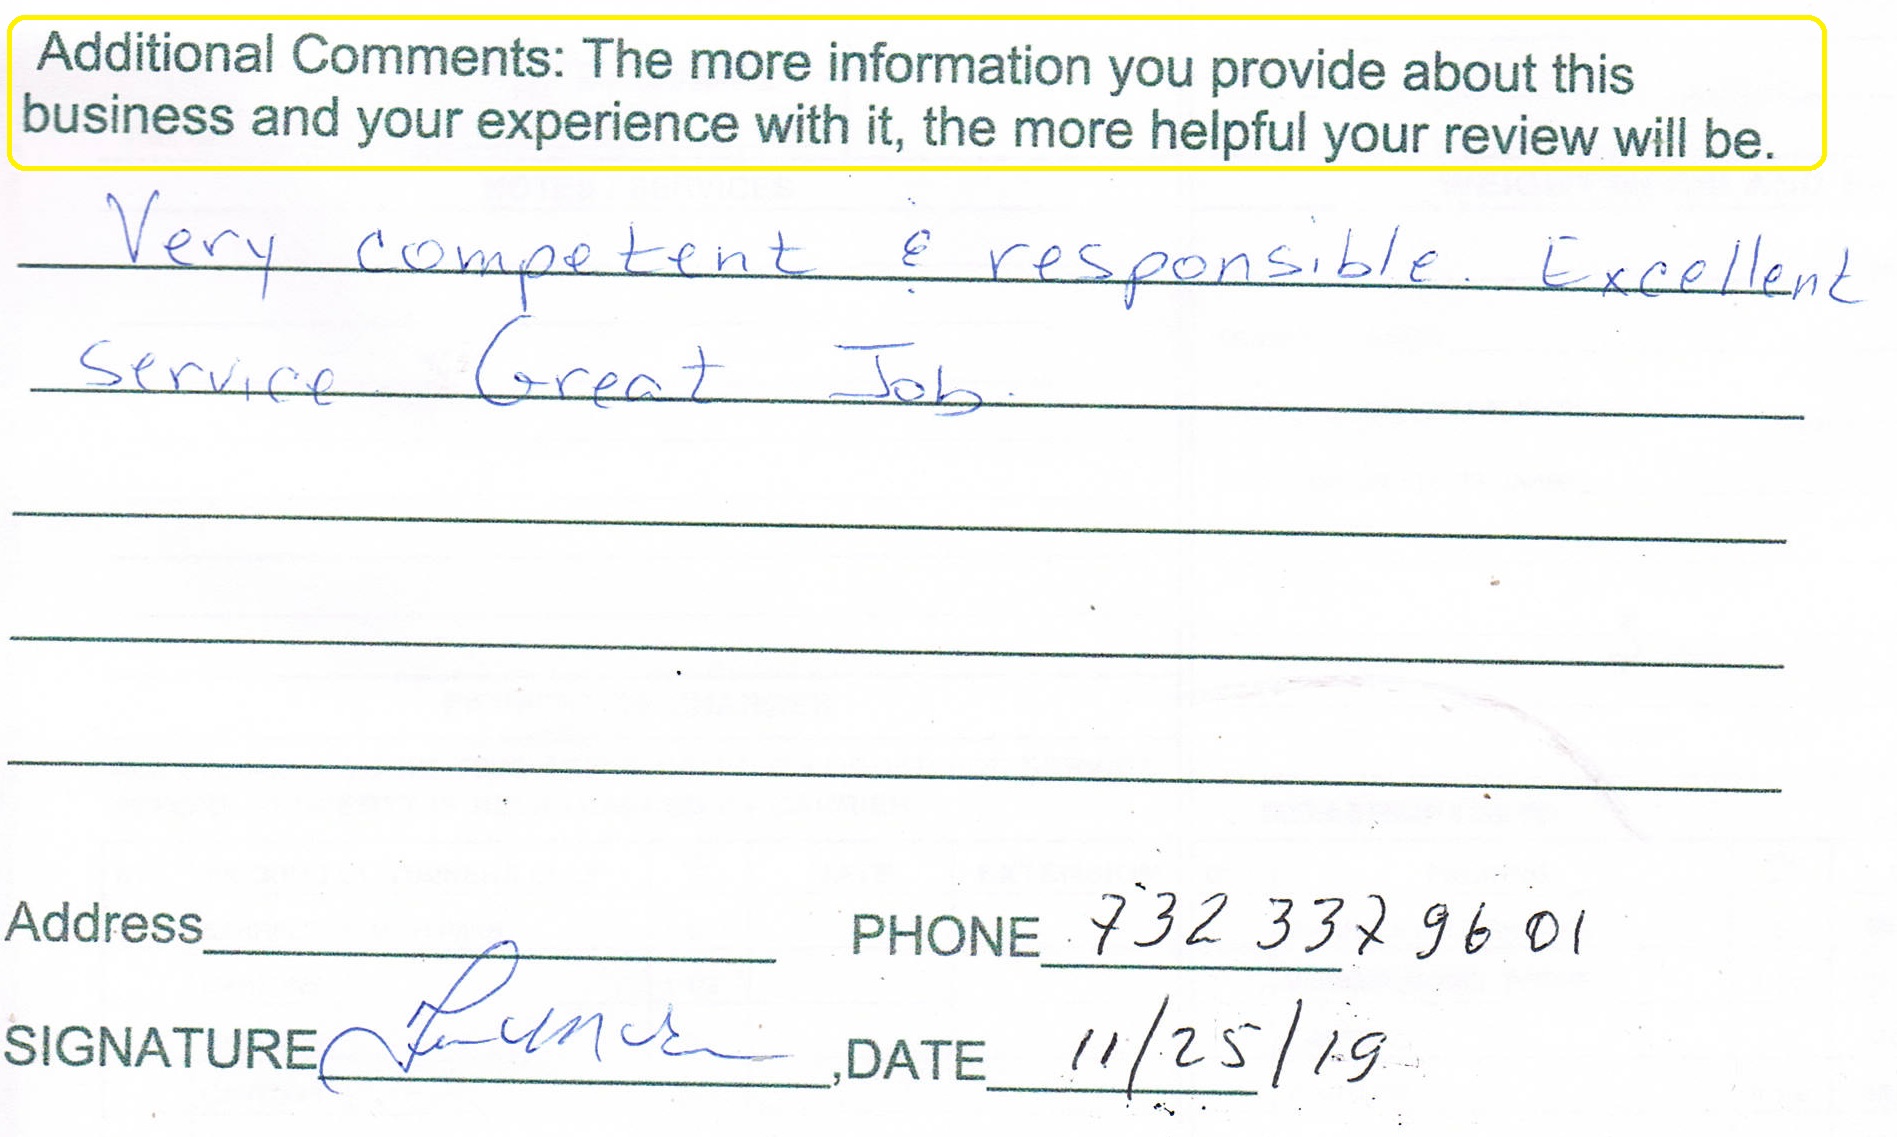 Additional Comments: The more information you provide about this
business and your experience with it, the more helpful your review will be.
Very competent & responsible. Excellent
service Great Job.
Address PHONE 732 337 9601
SIGNATURE ,DATE 11/25/19